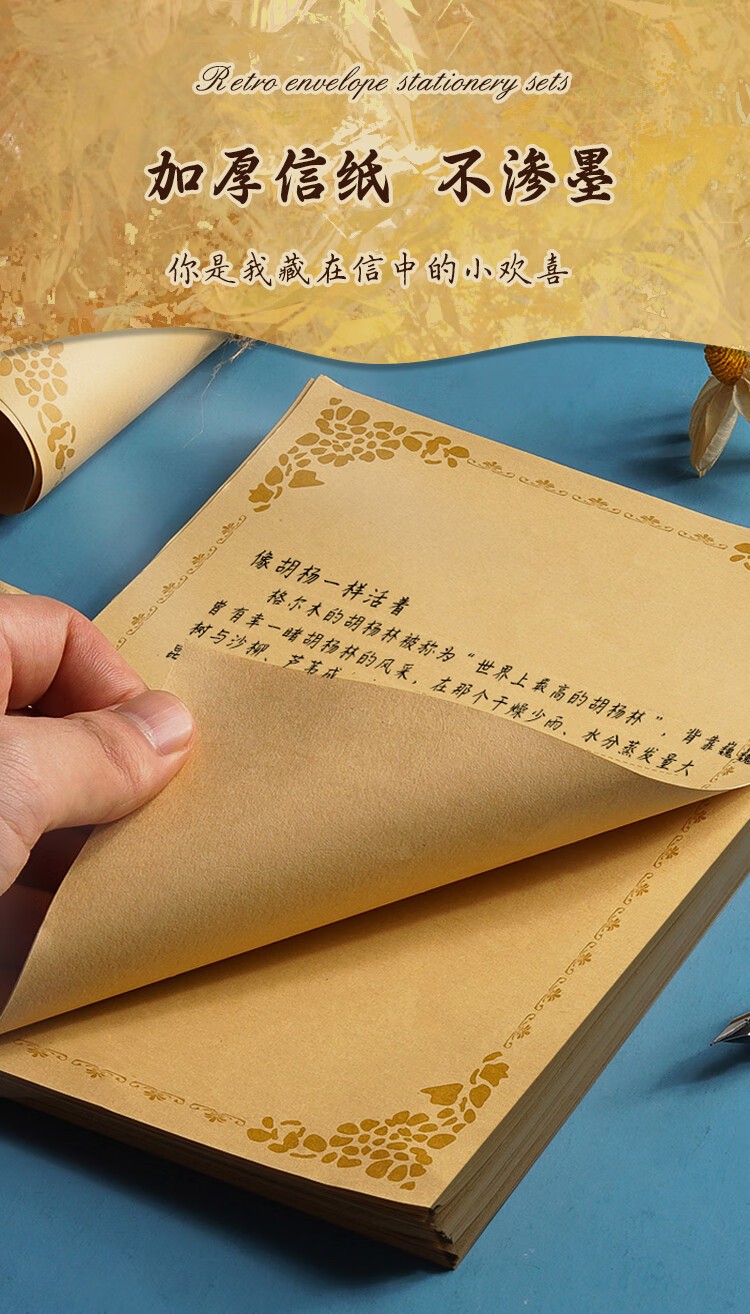 Retro envelope stationery sets
加厚信纸 不渗墨
你是我藏在信中的小欢喜
像胡杨一样活着
格尔木的胡杨林被称为“世界上最高的胡杨林”，背靠巍巍
昆
曾有幸一睹胡杨林的风采，在那个干燥少雨、水分蒸发量大
树与沙柳、芦苇成